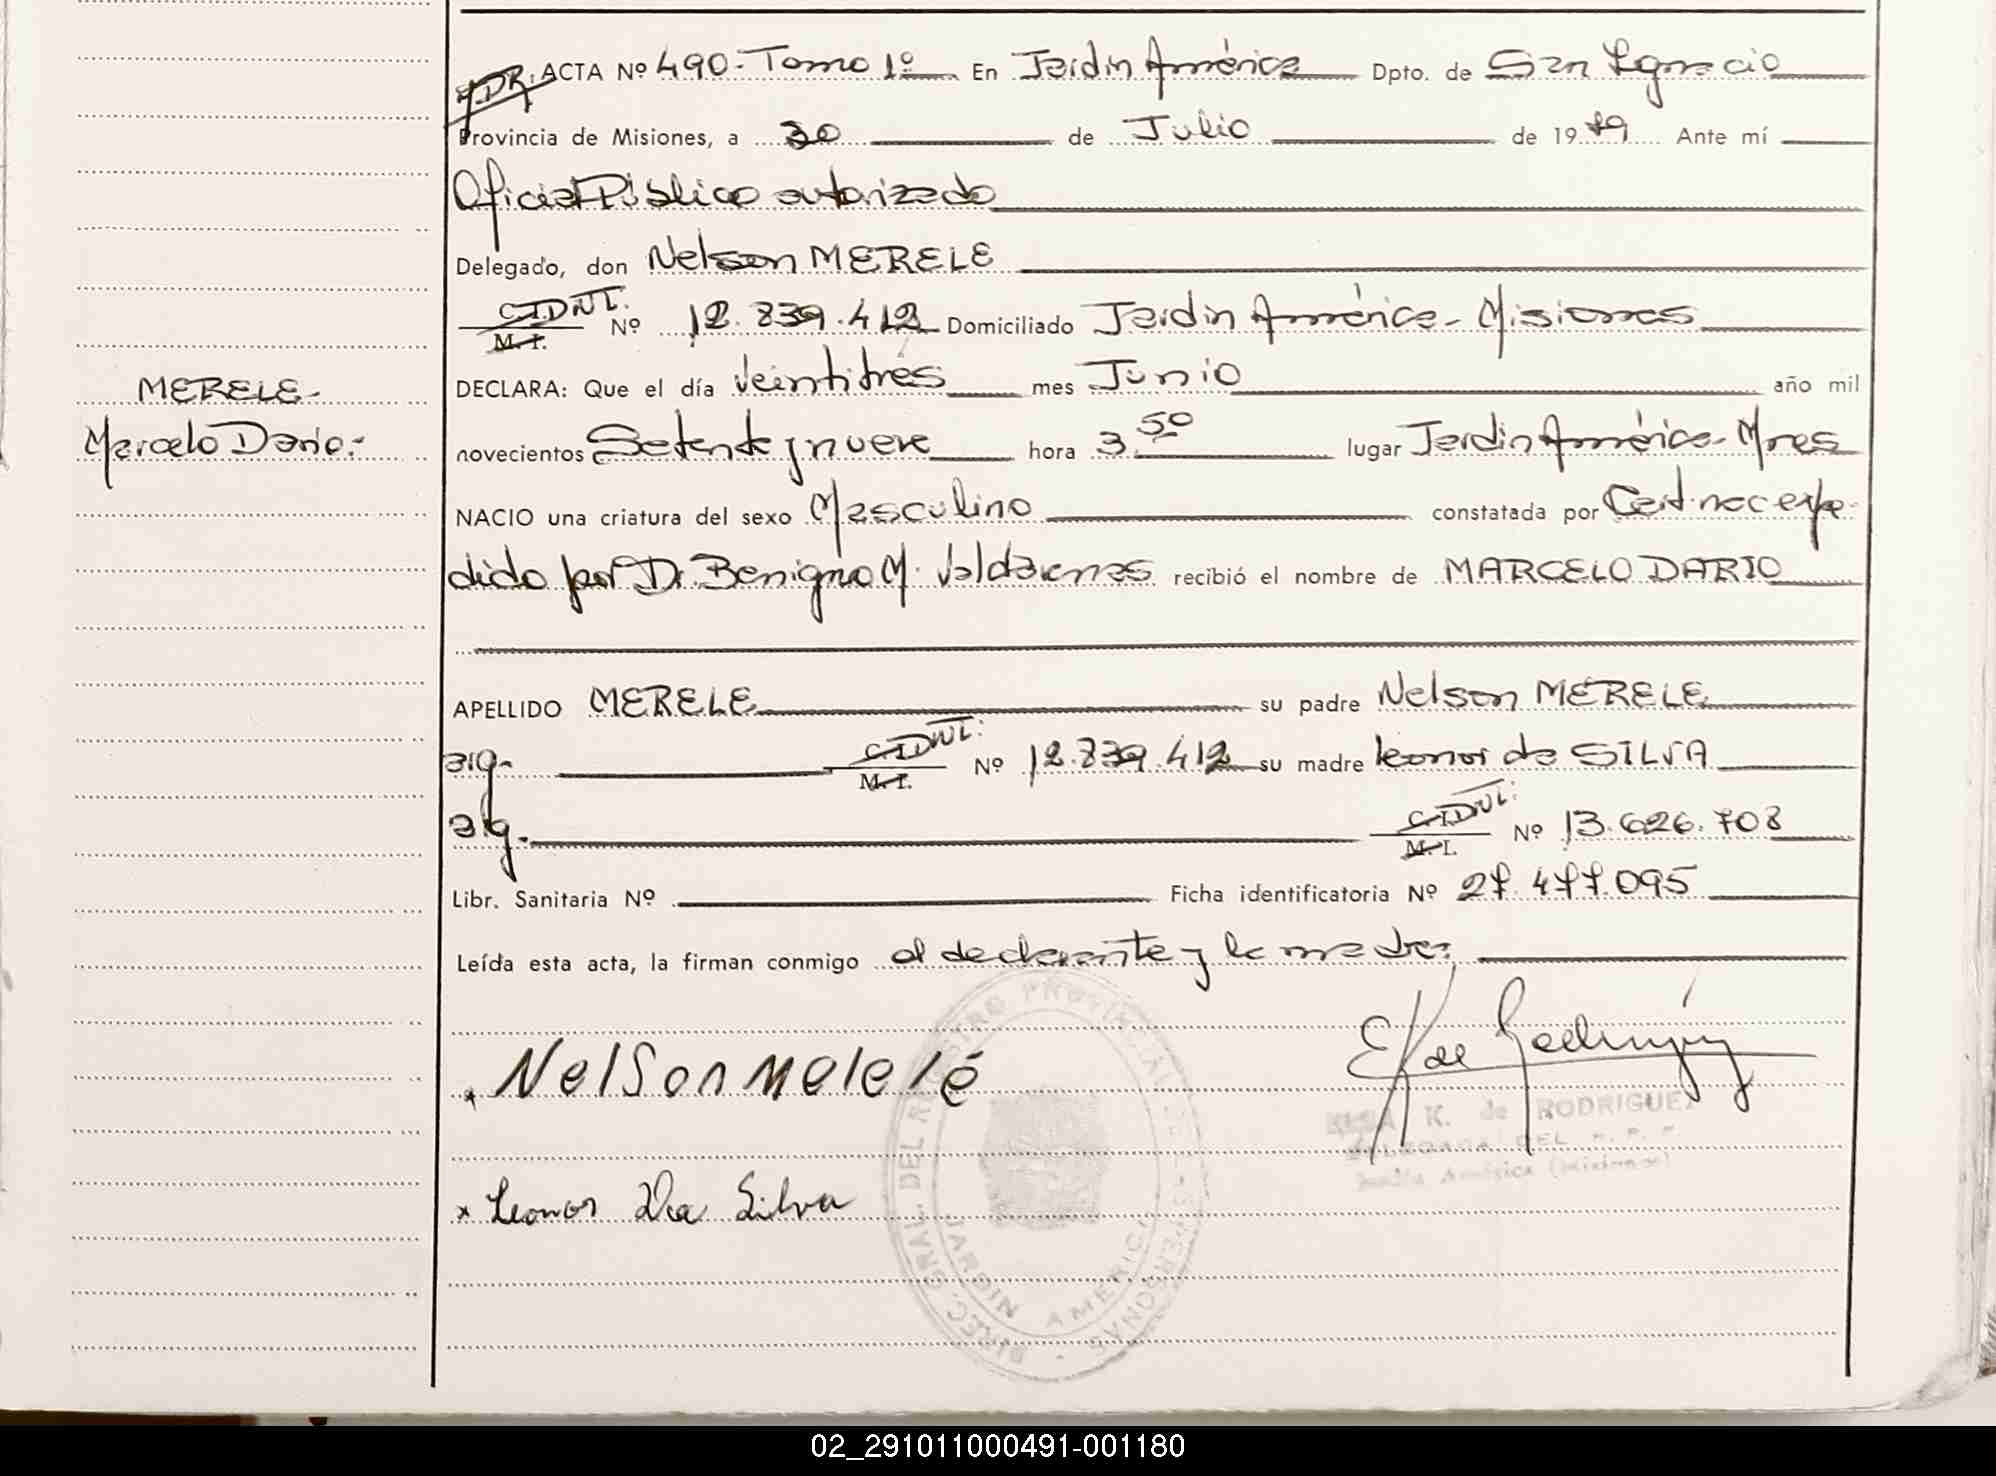 ACTA Nº 490- Tomo 1º En Jardín América Dpto. de San Ignacio
Provincia de Misiones, a 30 de Julio de 1979 Ante mí
Oficial Público autorizado
Delegado, don Nelson MERELE
C.I. DNI. M. I. Nº 12.839.412 Domiciliado Jardín América - Misiones
DECLARA: Que el día veintitrés mes Junio año mil
MERELE-
Marcelo Dario.-
novecientos Setenta y nueve hora 3 50 lugar Jardín América - Mnes
NACIO una criatura del sexo Masculino constatada por Cert. nac expe-
dido por Dr. Benigno M. recibió el nombre de MARCELO DARIO
APELLIDO MERELE su padre Nelson MERELE
arg. C.I. DNI. M. I. Nº 12.839.412 su madre Leonor da SILVA
arg. C.I. DNI. M. I. Nº 13.626.708
Libr. Sanitaria Nº Ficha identificatoria Nº 27.477.095
Leída esta acta, la firman conmigo el declarante y la madre:
Nelson Merelé
E K de Rodriguez
ELSA K. de RODRIGUEZ
DELEGADA DEL R. P. P.
Jardín América (Misiones)
x Leonor Da Silva
DIREC. GRAL. DEL REGISTRO PROVINCIAL DE LAS PERSONAS
JARDIN AMERICA
02_291011000491-001180